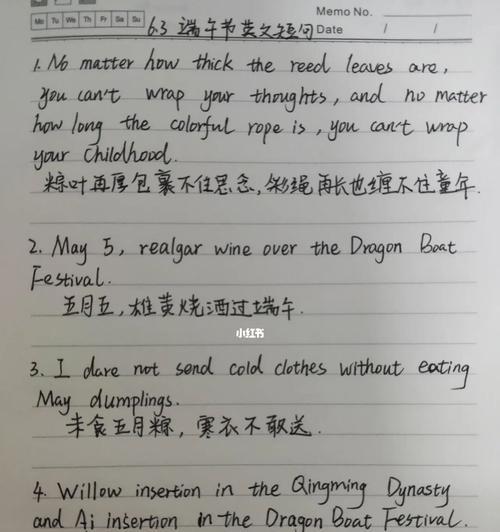 Memo No.
Mo Tu We Th Fr Sa Su
6.3 端午节英文短句
Date / /
1. No matter how thick the reed leaves are,
you can't wrap your thoughts, and no matter
how long the colorful rope is, you can't wrap
your childhood.
粽叶再厚包裹不住思念,彩绳再长也缠不住童年.
2. May 5, realgar wine over the Dragon Boat
Festival.
五月五,雄黄烧酒过端午.
小红书
3. I dare not send cold clothes without eating
May dumplings.
未食五月粽,寒衣不敢送.
4. Willow insertion in the Qingming Dynasty
and Ai insertion in the Dragon Boat Festival.